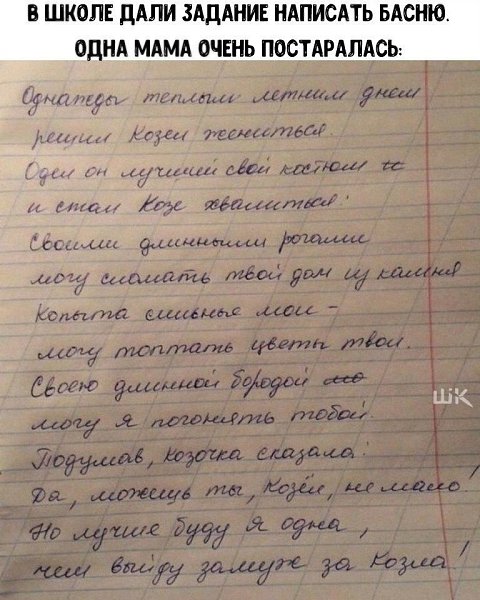 В ШКОЛЕ ДАЛИ ЗАДАНИЕ НАПИСАТЬ БАСНЮ.
ОДНА МАМА ОЧЕНЬ ПОСТАРАЛАСЬ:
Однажды теплым летним днем
решил Козел жениться.
Одел он лучший свой костюм
и стал Козе хвалиться:
Своими длинными рогами
могу сломать твой дом из камня
Копыта сильные мои –
могу топтать цветы твои.
Своею длинной бородой
могу я погонять тобой.
Подумав, козочка сказала:
Да, можешь ты, Козёл, не мало!
Но лучше буду я одна,
чем выйду замуж за Козла!
ШК